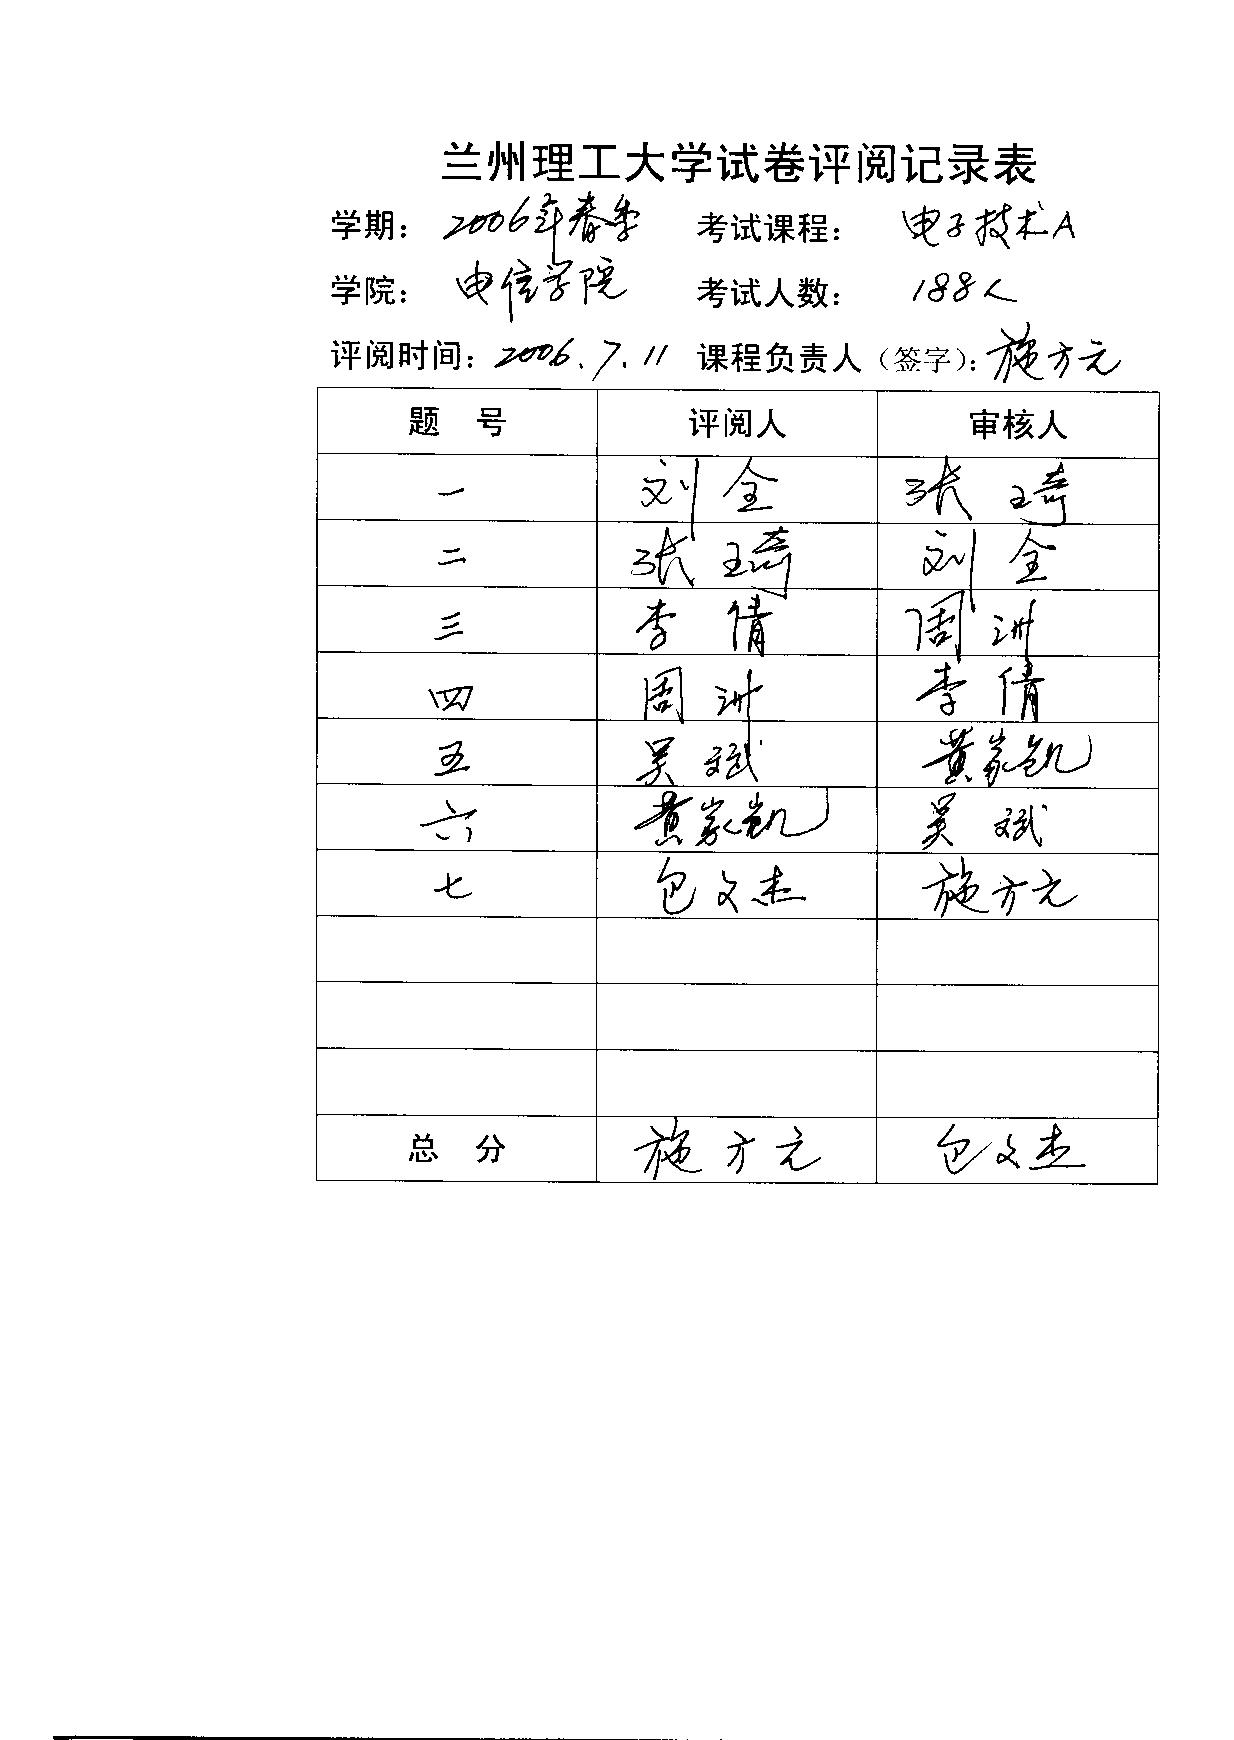 兰州理工大学试卷评阅记录表
学期： 2006年春季 考试课程： 电子技术A
学院： 电信学院 考试人数： 188人
评阅时间：2006.7.11 课程负责人（签字）：施方元
题 号 评阅人 审核人
一 刘全 张琦
二 张琦 刘全
三 李倩 周洲
四 周洲 李倩
五 吴斌 黄家凯
六 黄家凯 吴斌
七 包文杰 施方元
总 分 施方元 包文杰